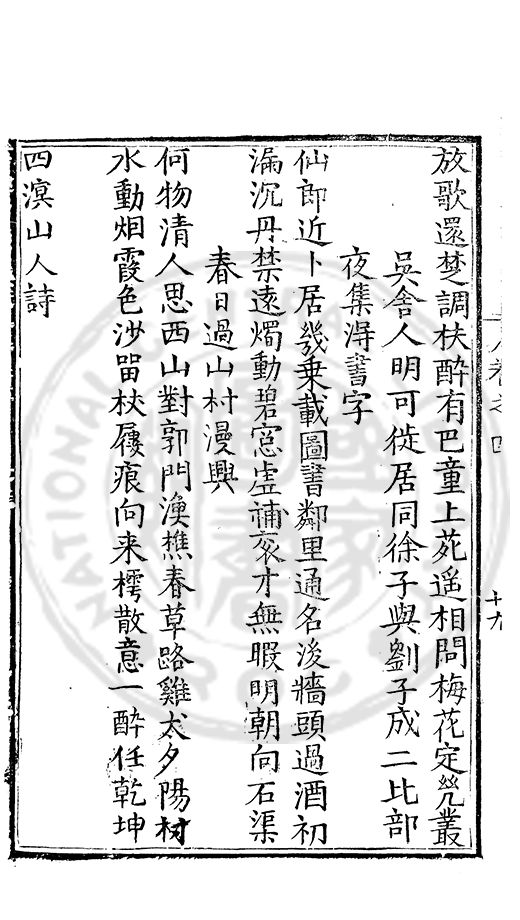 放歌還楚調扶醉有巴童上苑遥相問梅花定㡬叢
吳舍人明可徙居同徐子與劉子成二比部
夜集淂書字
仙郎近卜居㡬乗載圖書鄰里通名後牆頭過酒初
漏沉丹禁遠燭動碧窓虛補衮才無暇明朝向石渠
春日過山村漫興
何物清人思西山對郭門漁樵春草路雞犬夕陽村
水動烟霞色沙留杖屨痕向来樗散意一醉任乾坤
四溟山人詩
卷之四
十九